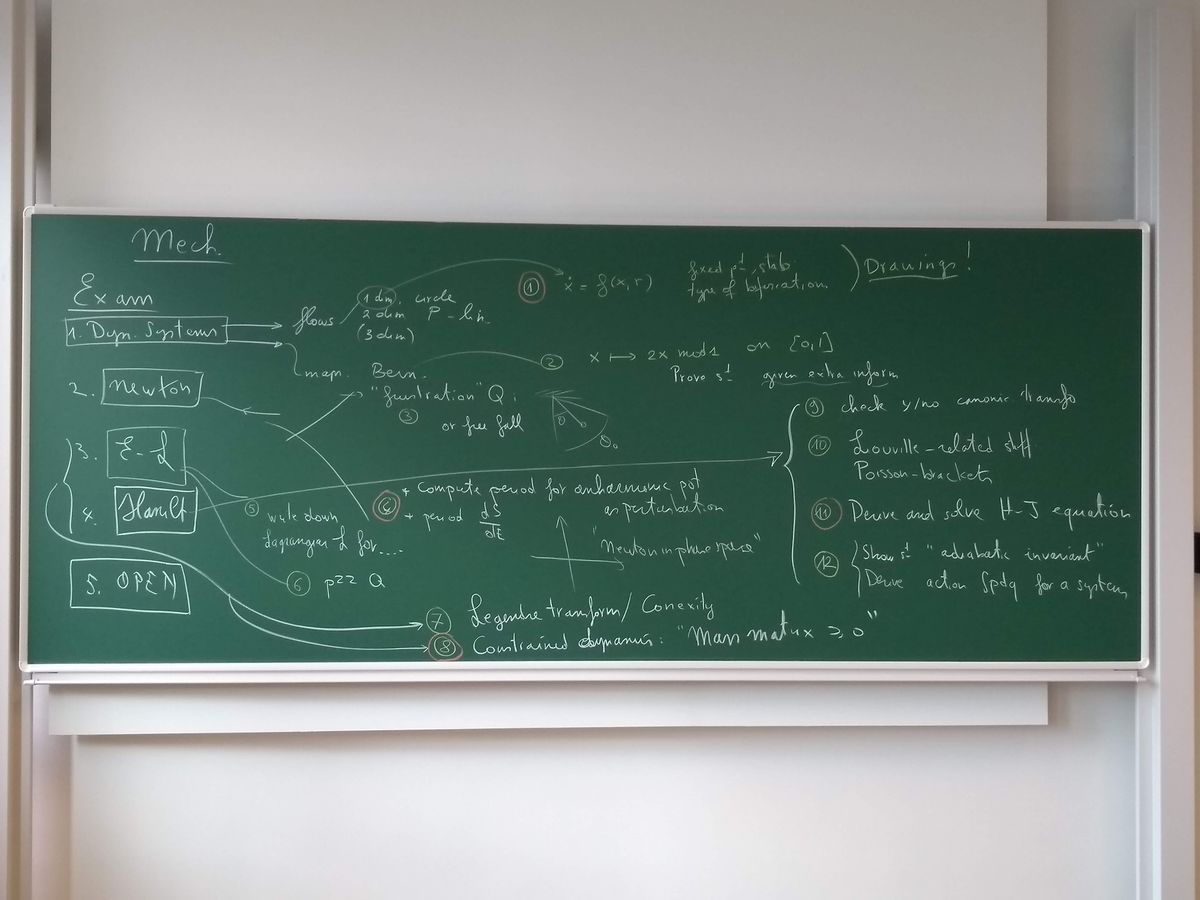 Mech.
Exam
1. Dyn. Systems
flows
1 dim, circle
2 dim P-lin.
(3 dim)
map. Bern.
① ẋ = f(x, r)
fixed pt, stab
type of bifurcation
Drawings!
② x ↦ 2x mod 1 on [0,1]
Prove st given extra inform
2. Newton
"frustration" Q:
③ or free fall
θ
θ₀
3. E-L
4. Hamilt
5. OPEN
④ + Compute period for anharmonic pot
as perturbation
+ period dS/dE
"Newton in phase space"
⑤ write down
Lagrangian L for....
⑥ pzz Q
⑦ Legendre transform / Conexity
⑧ Constrained dynamis: "Mass matrix ≥ 0"
⑨ check y/no canonic transfo
⑩ Liouville-related stff
Poisson-brackets
⑪ Derive and solve H-J equation
⑫ Show st "adiabatic invariant"
Derive action ∫pdq for a system